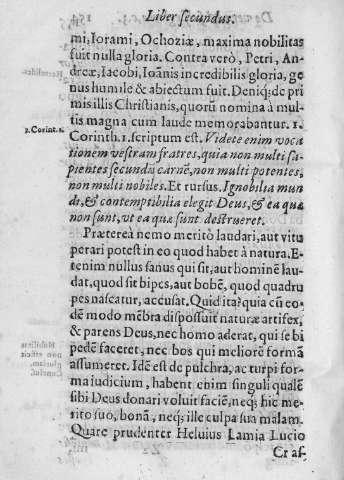 Liber secundus.
mi, Iorami, Ochoziæ, maxima nobilitas
fuit nulla gloria. Contra verò, Petri, An-
dreæ, Iacobi, Ioānis incredibilis gloria, ge
nus humile & abiectum fuit. Deniq; de pri
mis illis Christianis, quorū nomina à mul-
tis magna cum laude memorabantur. 1.
1. Corint. 1.
Corinth. 1. scriptum est. Videte enim voca
tionem vestram fratres, quia non multi sa-
pientes secundū carnē, non multi potentes,
non multi nobiles. Et rursus. Ignobilia mun
di, & contemptibilia elegit Deus, & ea quæ
non sunt, vt ea quæ sunt destrueret.
Prætereà nemo meritò laudari, aut vitu
perari potest in eo quod habet à natura. E-
tenim nullus sanus qui sit, aut hominē lau-
dat, quod sit bipes, aut bobē, quod quadru
pes nascatur, accusat. Quid ita? quia cū eo-
dē modo mēbra dispossuit naturæ artifex,
& parens Deus, nec homo aderat, qui se bi
pedē faceret, nec bos qui meliorē formā
assumeret. Idē est de pulchra, ac turpi for-
ma iudicium, habent enim singuli qualē
sibi Deus donari voluit faciē, neq; hic me-
rito suo, bonā, neq; ille culpa sua malam.
Quare prudenter Heluius Lamia Lucio
Craf-